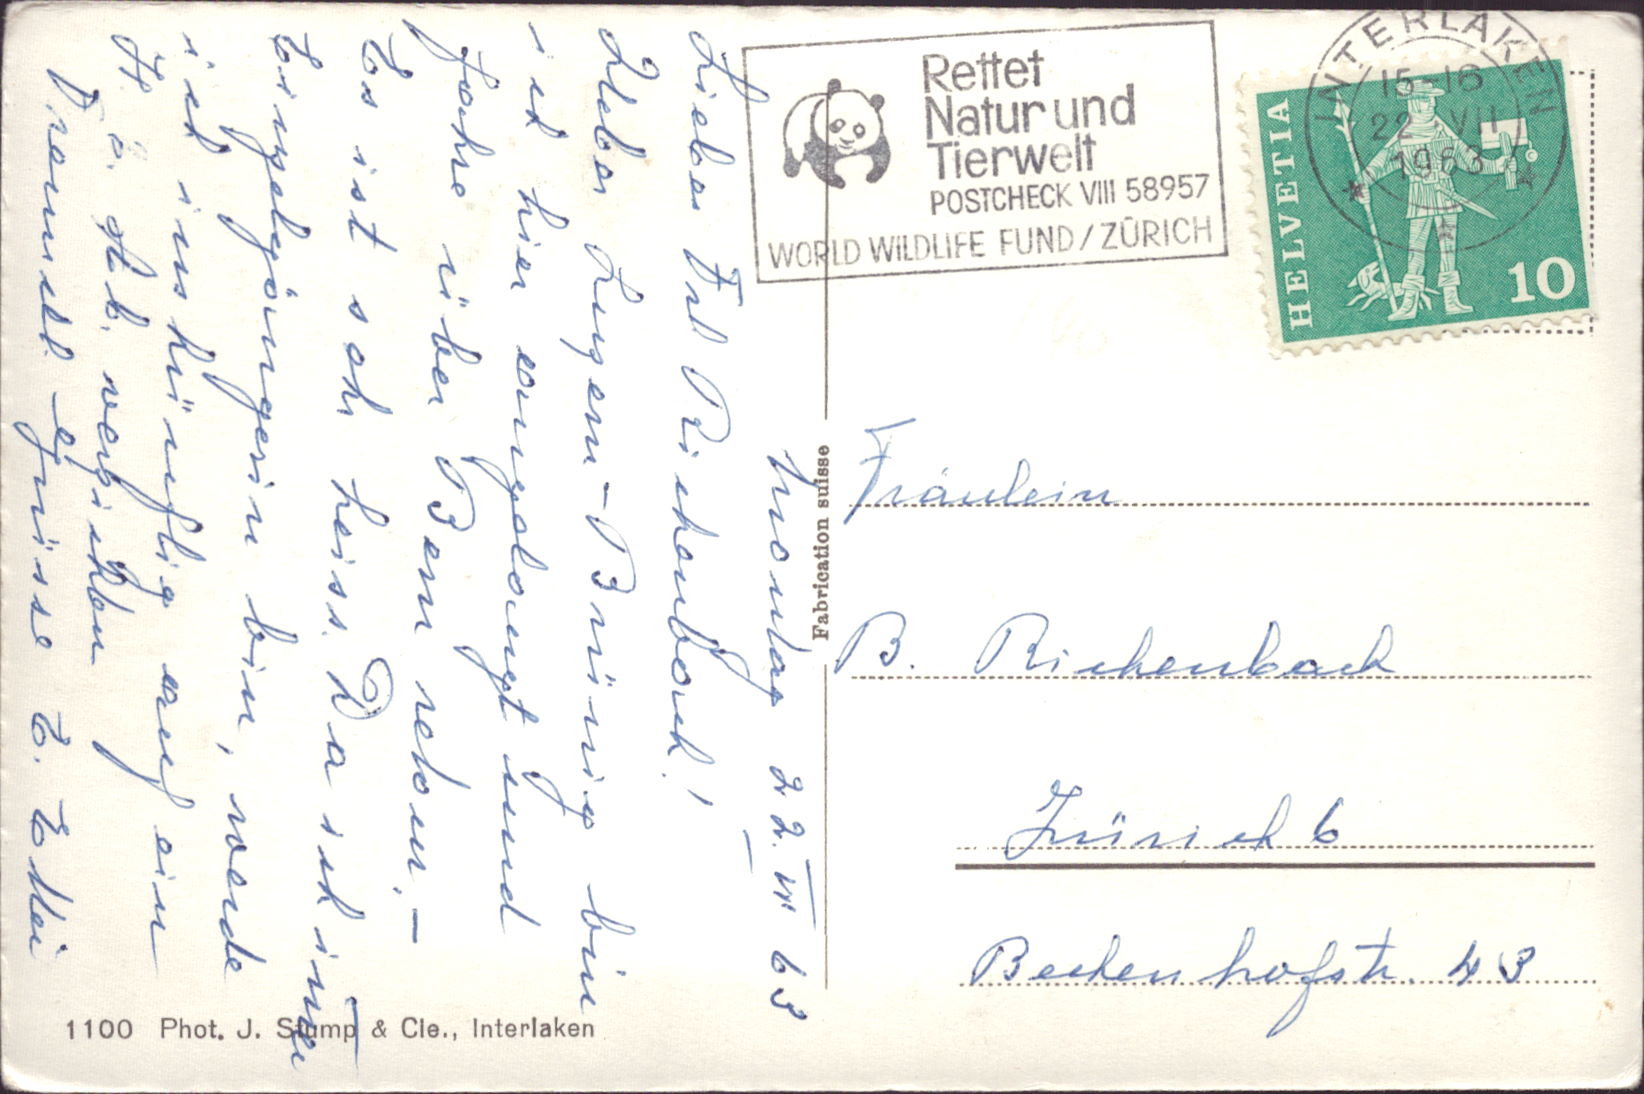 Montag 22. VII 63
Liebes Frl Richenbach!
Ueber Luzern-Brünig bin
ich hier angelangt und
fahre über Bern schon.-
Es ist sehr heiss. Da ich immer
Einzelgängerin bin, werde
ich inskünftig auf ein
H. a. verzichten
Freundl. Grüsse E.
Rettet
Natur und
Tierwelt
POSTCHECK VIII 58957
WORLD WILDLIFE FUND/ZÜRICH
INTERLAKEN
15-16
22.VII
1963
HELVETIA
10
Fabrication suisse
Fräulein
B. Richenbach
Zürich 6
Beckenhofstr. 43
1100 Phot. J. Stump & Cie., Interlaken